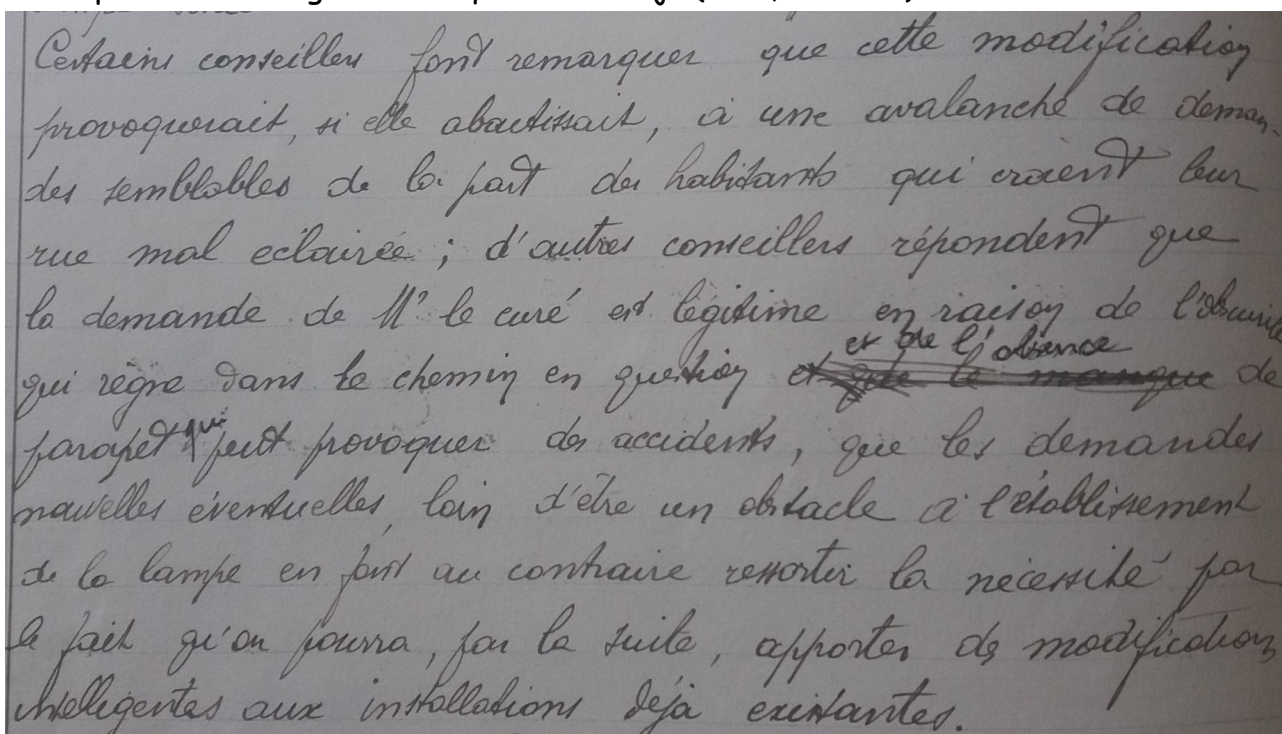 Certains conseillers font remarquer que cette modification
provoquerait, si elle aboutissait, à une avalanche de deman-
des semblables de la part des habitants qui croient leur
rue mal eclairée ; d'autres conseillers répondent que
la demande de Mr le curé est légitime en raison de l'obscurité
qui règne dans le chemin en question et de l'absence de
parapet qui peut provoquer des accidents, que les demandes
nouvelles éventuelles, loin d'être un obstacle à l'établissement
de la lampe en font au contraire ressortir la nécessité par
le fait qu'on pourra, par la suite, apporter des modifications
intelligentes aux installations déjà existantes.